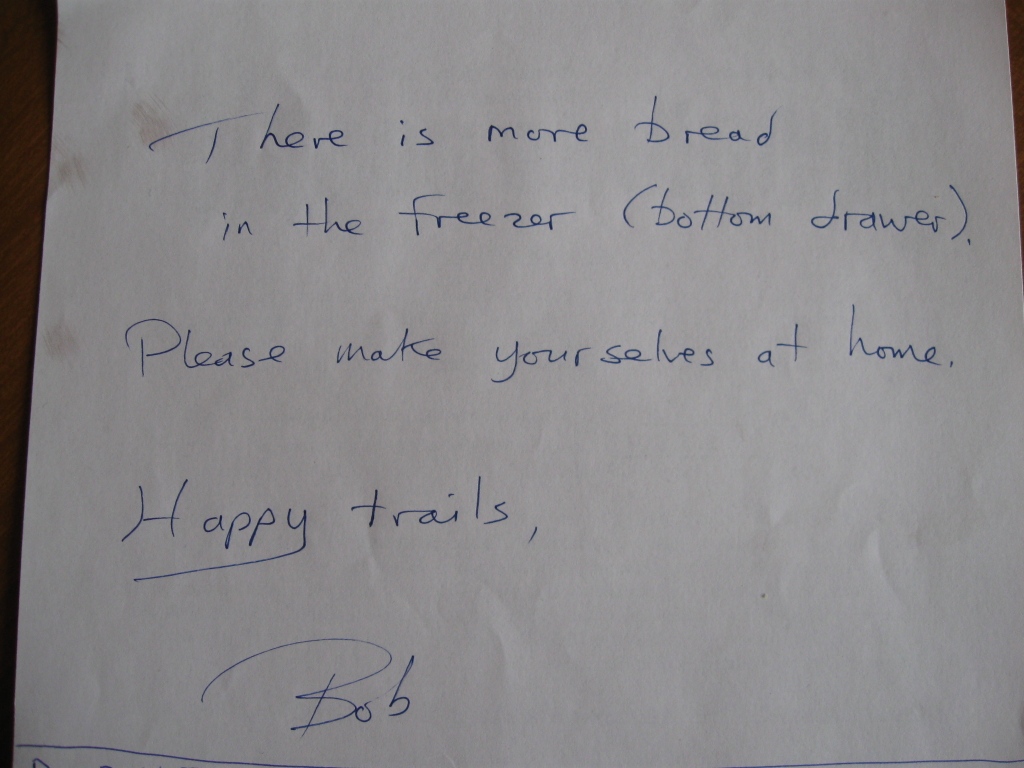 There is more bread
in the freezer (bottom drawer).
Please make yourselves at home.
Happy trails,
Bob